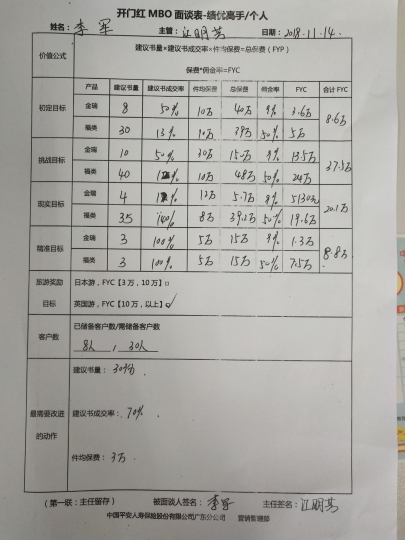 开门红 MBO 面谈表-绩优高手/个人
姓名：李军 主管：江明芳 日期：2018.11.14.
价值公式 建议书量×建议书成交率×件均保费=总保费（FYP）
保费*佣金率=FYC
产品 建议书量 建议书成交率 件均保费 总保费 佣金率 FYC 合计 FYC
初定目标 金瑞 8 50% 10万 40万 9% 3.6万 8.6万
福类 30 13% 10万 39万 50% 5万
挑战目标 金瑞 10 50% 30万 150万 9% 13.5万 37.5万
福类 40 12% 10万 48万 50% 24万
现实目标 金瑞 4 12万 5.7万 9% 5130元 20.1万
福类 35 140% 8万 39.2万 50% 19.6万
精准目标 金瑞 3 100% 5万 15万 9% 1.3万 8.8万
福类 3 100% 5万 15万 50% 7.5万
旅游奖励 日本游，FYC【3万，10万】□
目标 英国游，FYC【10万，以上】☑
客户数 已储备客户数/需储备客户数
8人 , 30人
最需要改进的动作
建议书量：30份 .
建议书成交率：70% .
件均保费：3万 .
（第一联：主任留存） 被面谈人签名：李军 主任签名：江明芳
中国平安人寿保险股份有限公司广东分公司 营销管理部